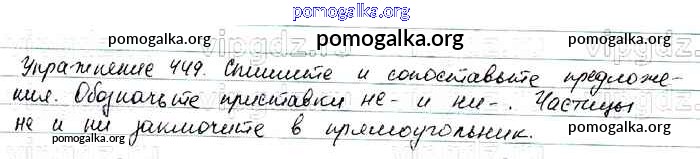 pomogalka.org
pomogalka.org pomogalka.org pomogalka.org
Упражнение 449. Спишите и сопоставьте предложе-
ния. Обозначьте приставки не- и ни-. Частицы
не и ни заключите в прямоугольник.
pomogalka.org pomogalka.org pomogalka.org